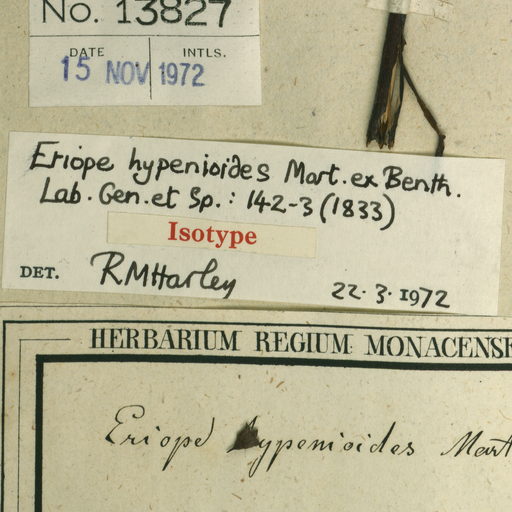 No. 13827
DATE INTLS.
15 NOV 1972
Eriope hypenioides Mart. ex Benth.
Lab. Gen. et Sp.: 142-3 (1833)
Isotype
DET. RMHarley 22.3.1972
HERBARIUM REGIUM MONACENSE
Eriope hypenioides Mart